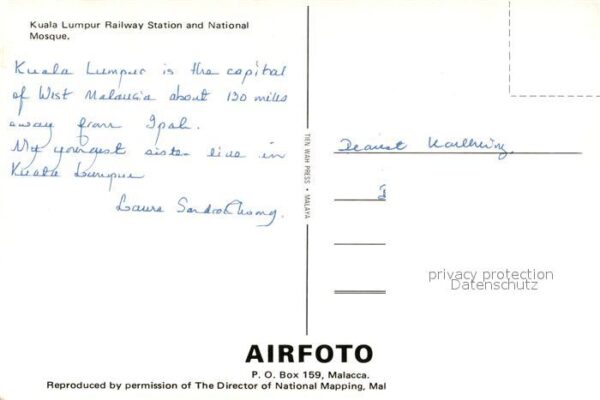 Kuala Lumpur Railway Station and National
Mosque.
Kuala Lumpur is the capital
of West Malaysia about 130 miles
away from Ipoh.
My youngest sister live in
Kuala Lumpur
Laura
TIEN WAH PRESS • MALAYA
Dearest Karlheinz
privacy protection
Datenschutz
AIRFOTO
P. O. Box 159, Malacca.
Reproduced by permission of The Director of National Mapping, Mal